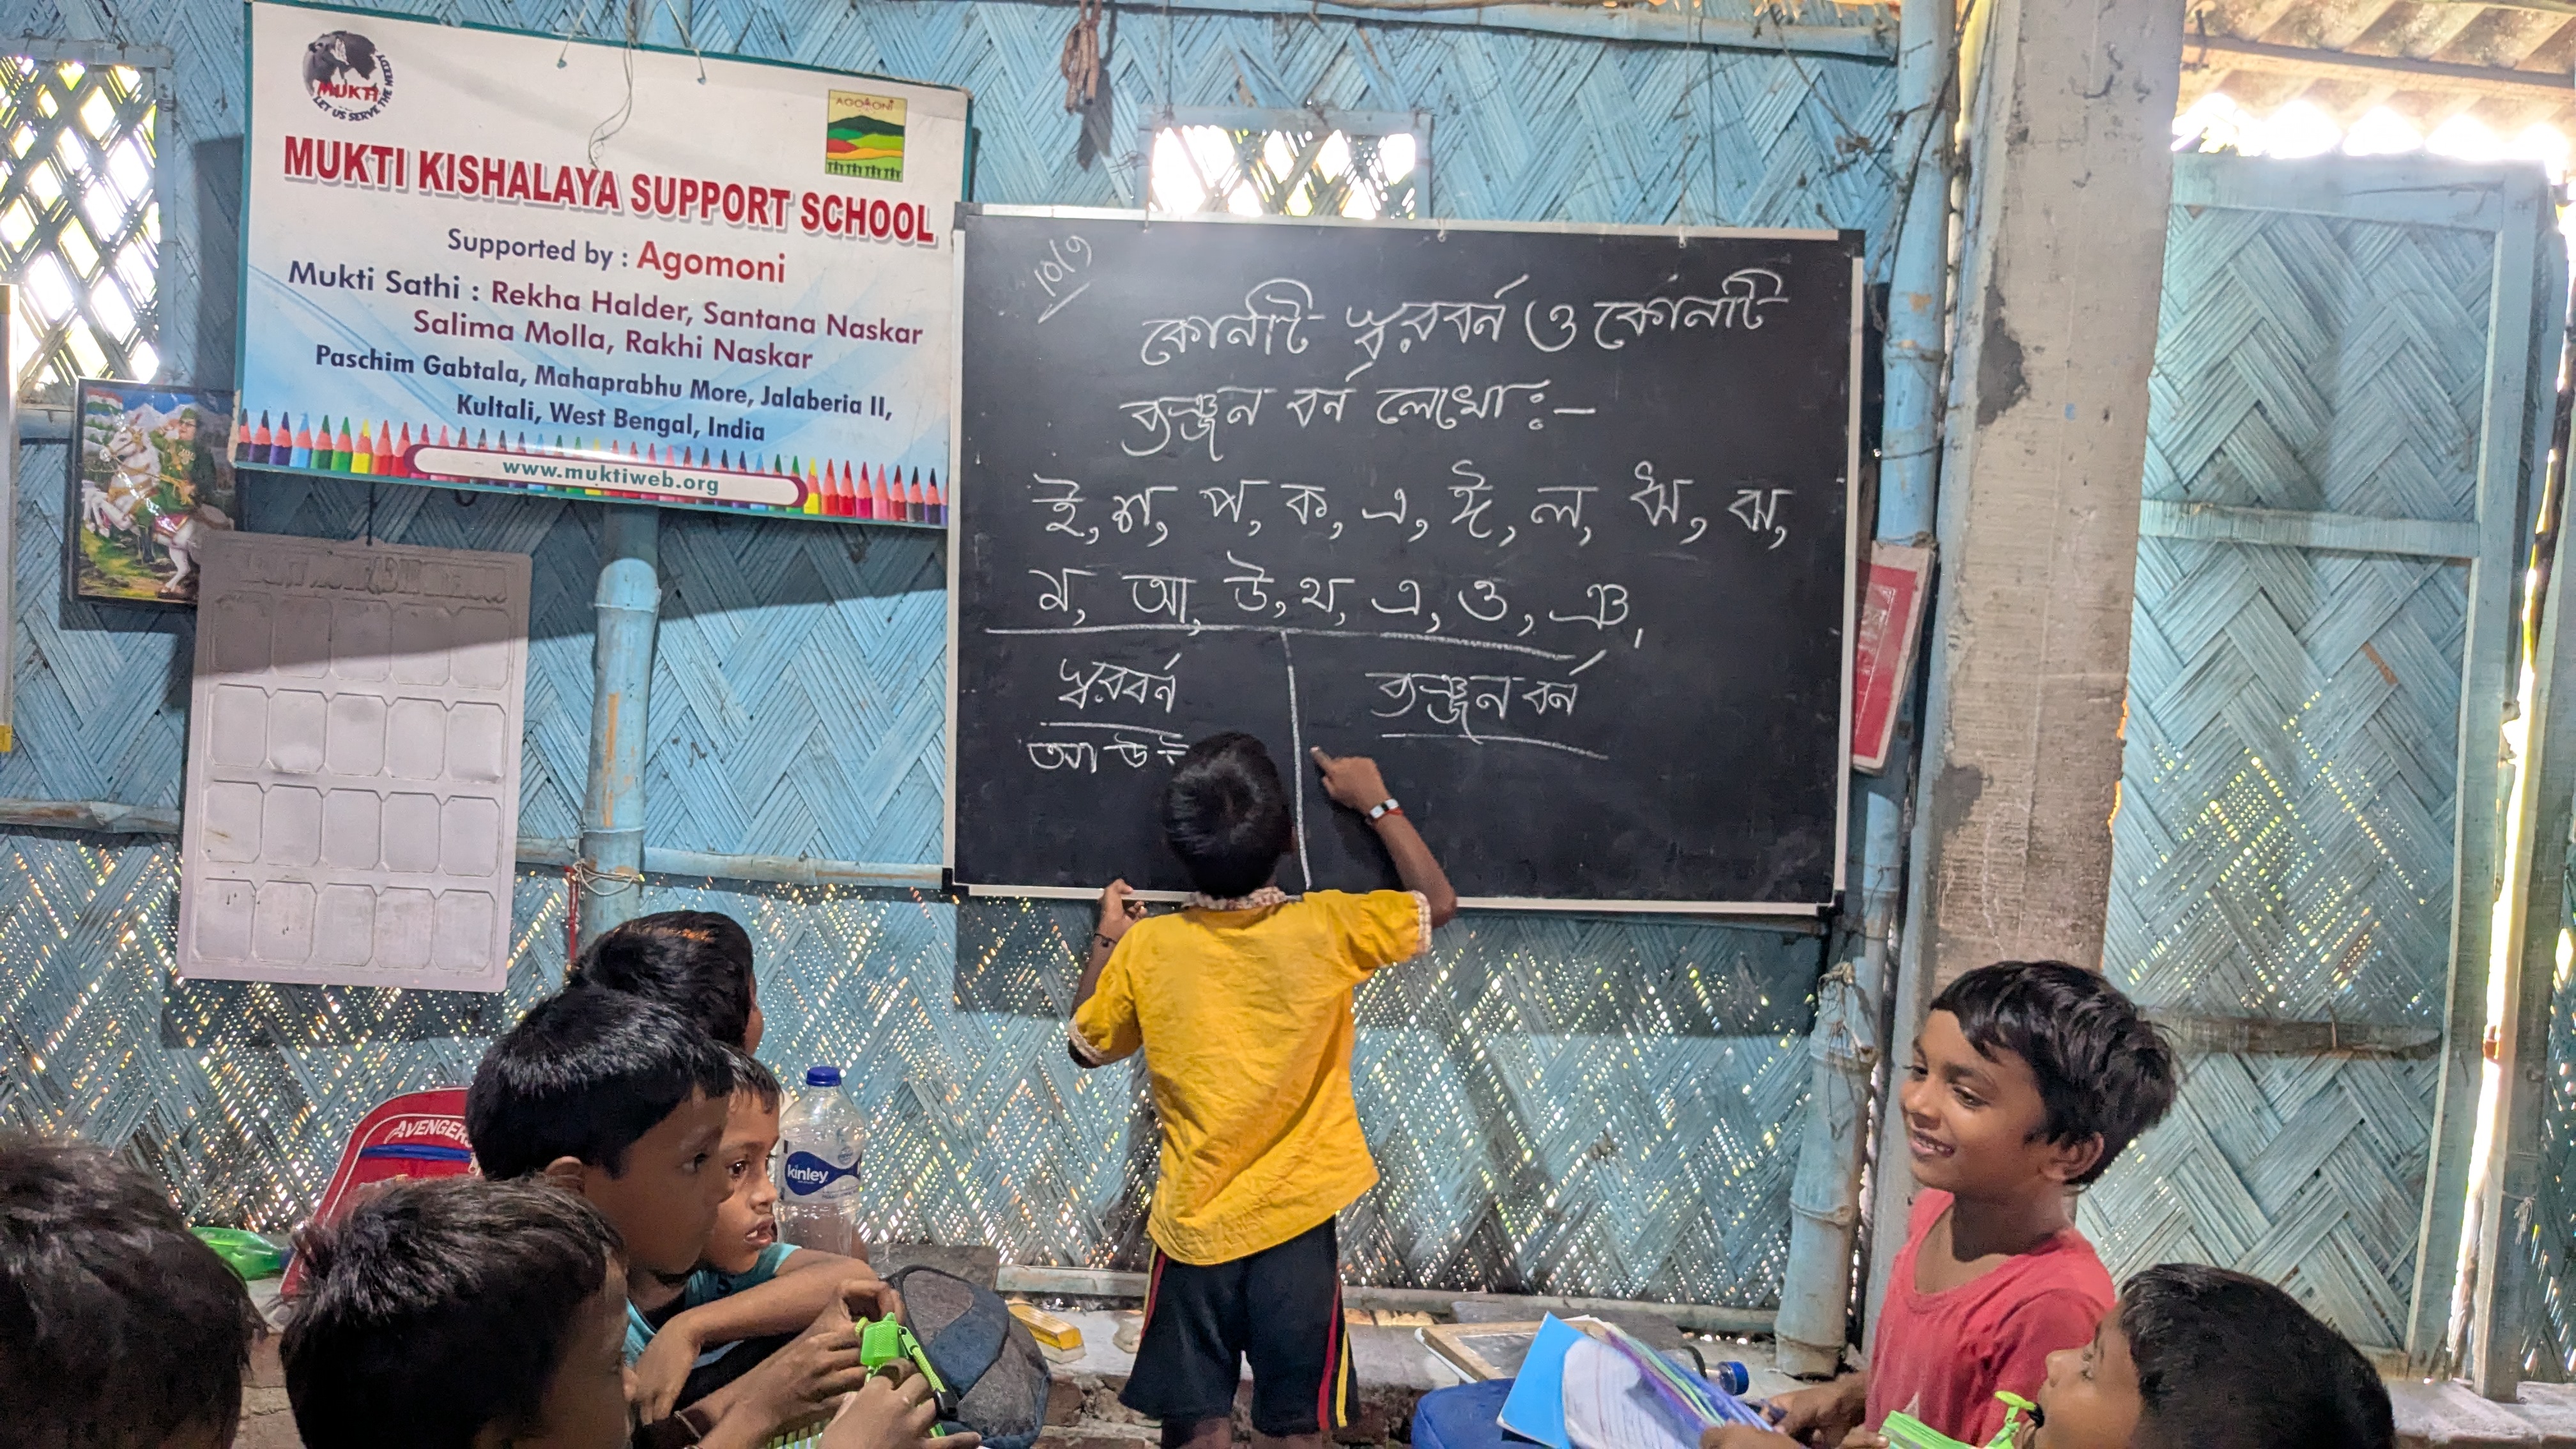 MUKTI
LET US SERVE THE NEEDY
AGOMONI
MUKTI KISHALAYA SUPPORT SCHOOL
Supported by : Agomoni
Mukti Sathi : Rekha Halder, Santana Naskar
Salima Molla, Rakhi Naskar
Paschim Gabtala, Mahaprabhu More, Jalaberia II,
Kultali, West Bengal, India
www.muktiweb.org
কোনটি স্বরবর্ন ও কোনটি
ব্যঞ্জন বর্ন লেখো :-
ই, শ, প, ক, এ, ঈ, ল, ঋ, ঝ,
ম, আ, উ, থ, এ, ও, ঞ,
স্বরবর্ন
ব্যঞ্জন বর্ন
আ উ
AVENGERS
kinley